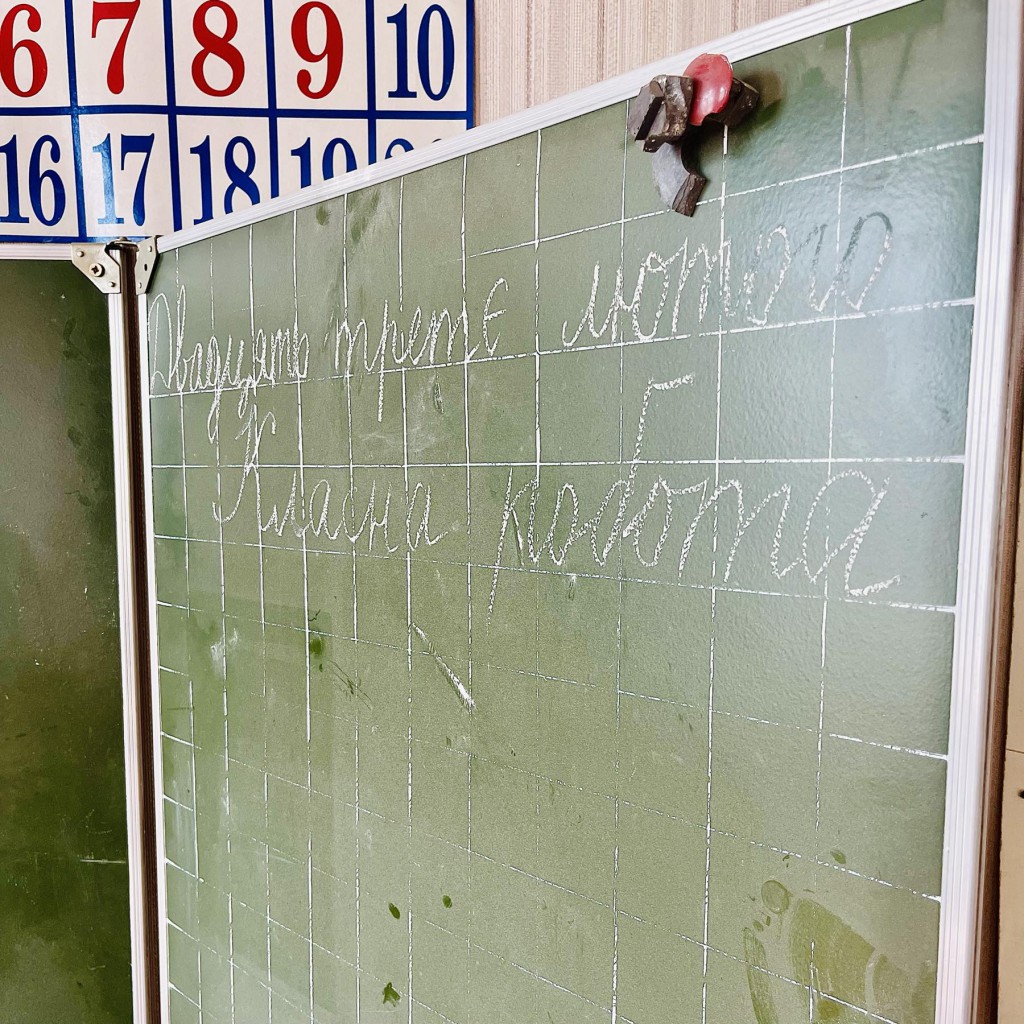 6 7 8 9 10
16 17 18 19 20
Двадцять третє лютого
Класна робота